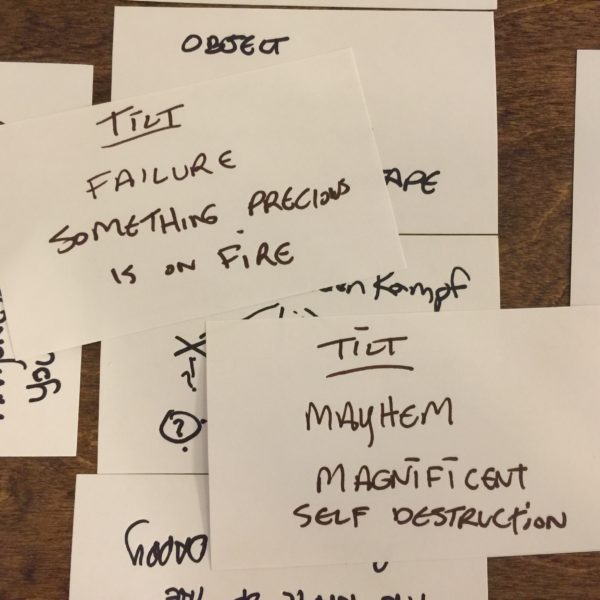 OBJECT
TILT
FAILURE
SOMETHING PRECIOUS
IS ON FIRE
APE
Kampf
TILT
MAYHEM
MAGNIFICENT
SELF DESTRUCTION
?